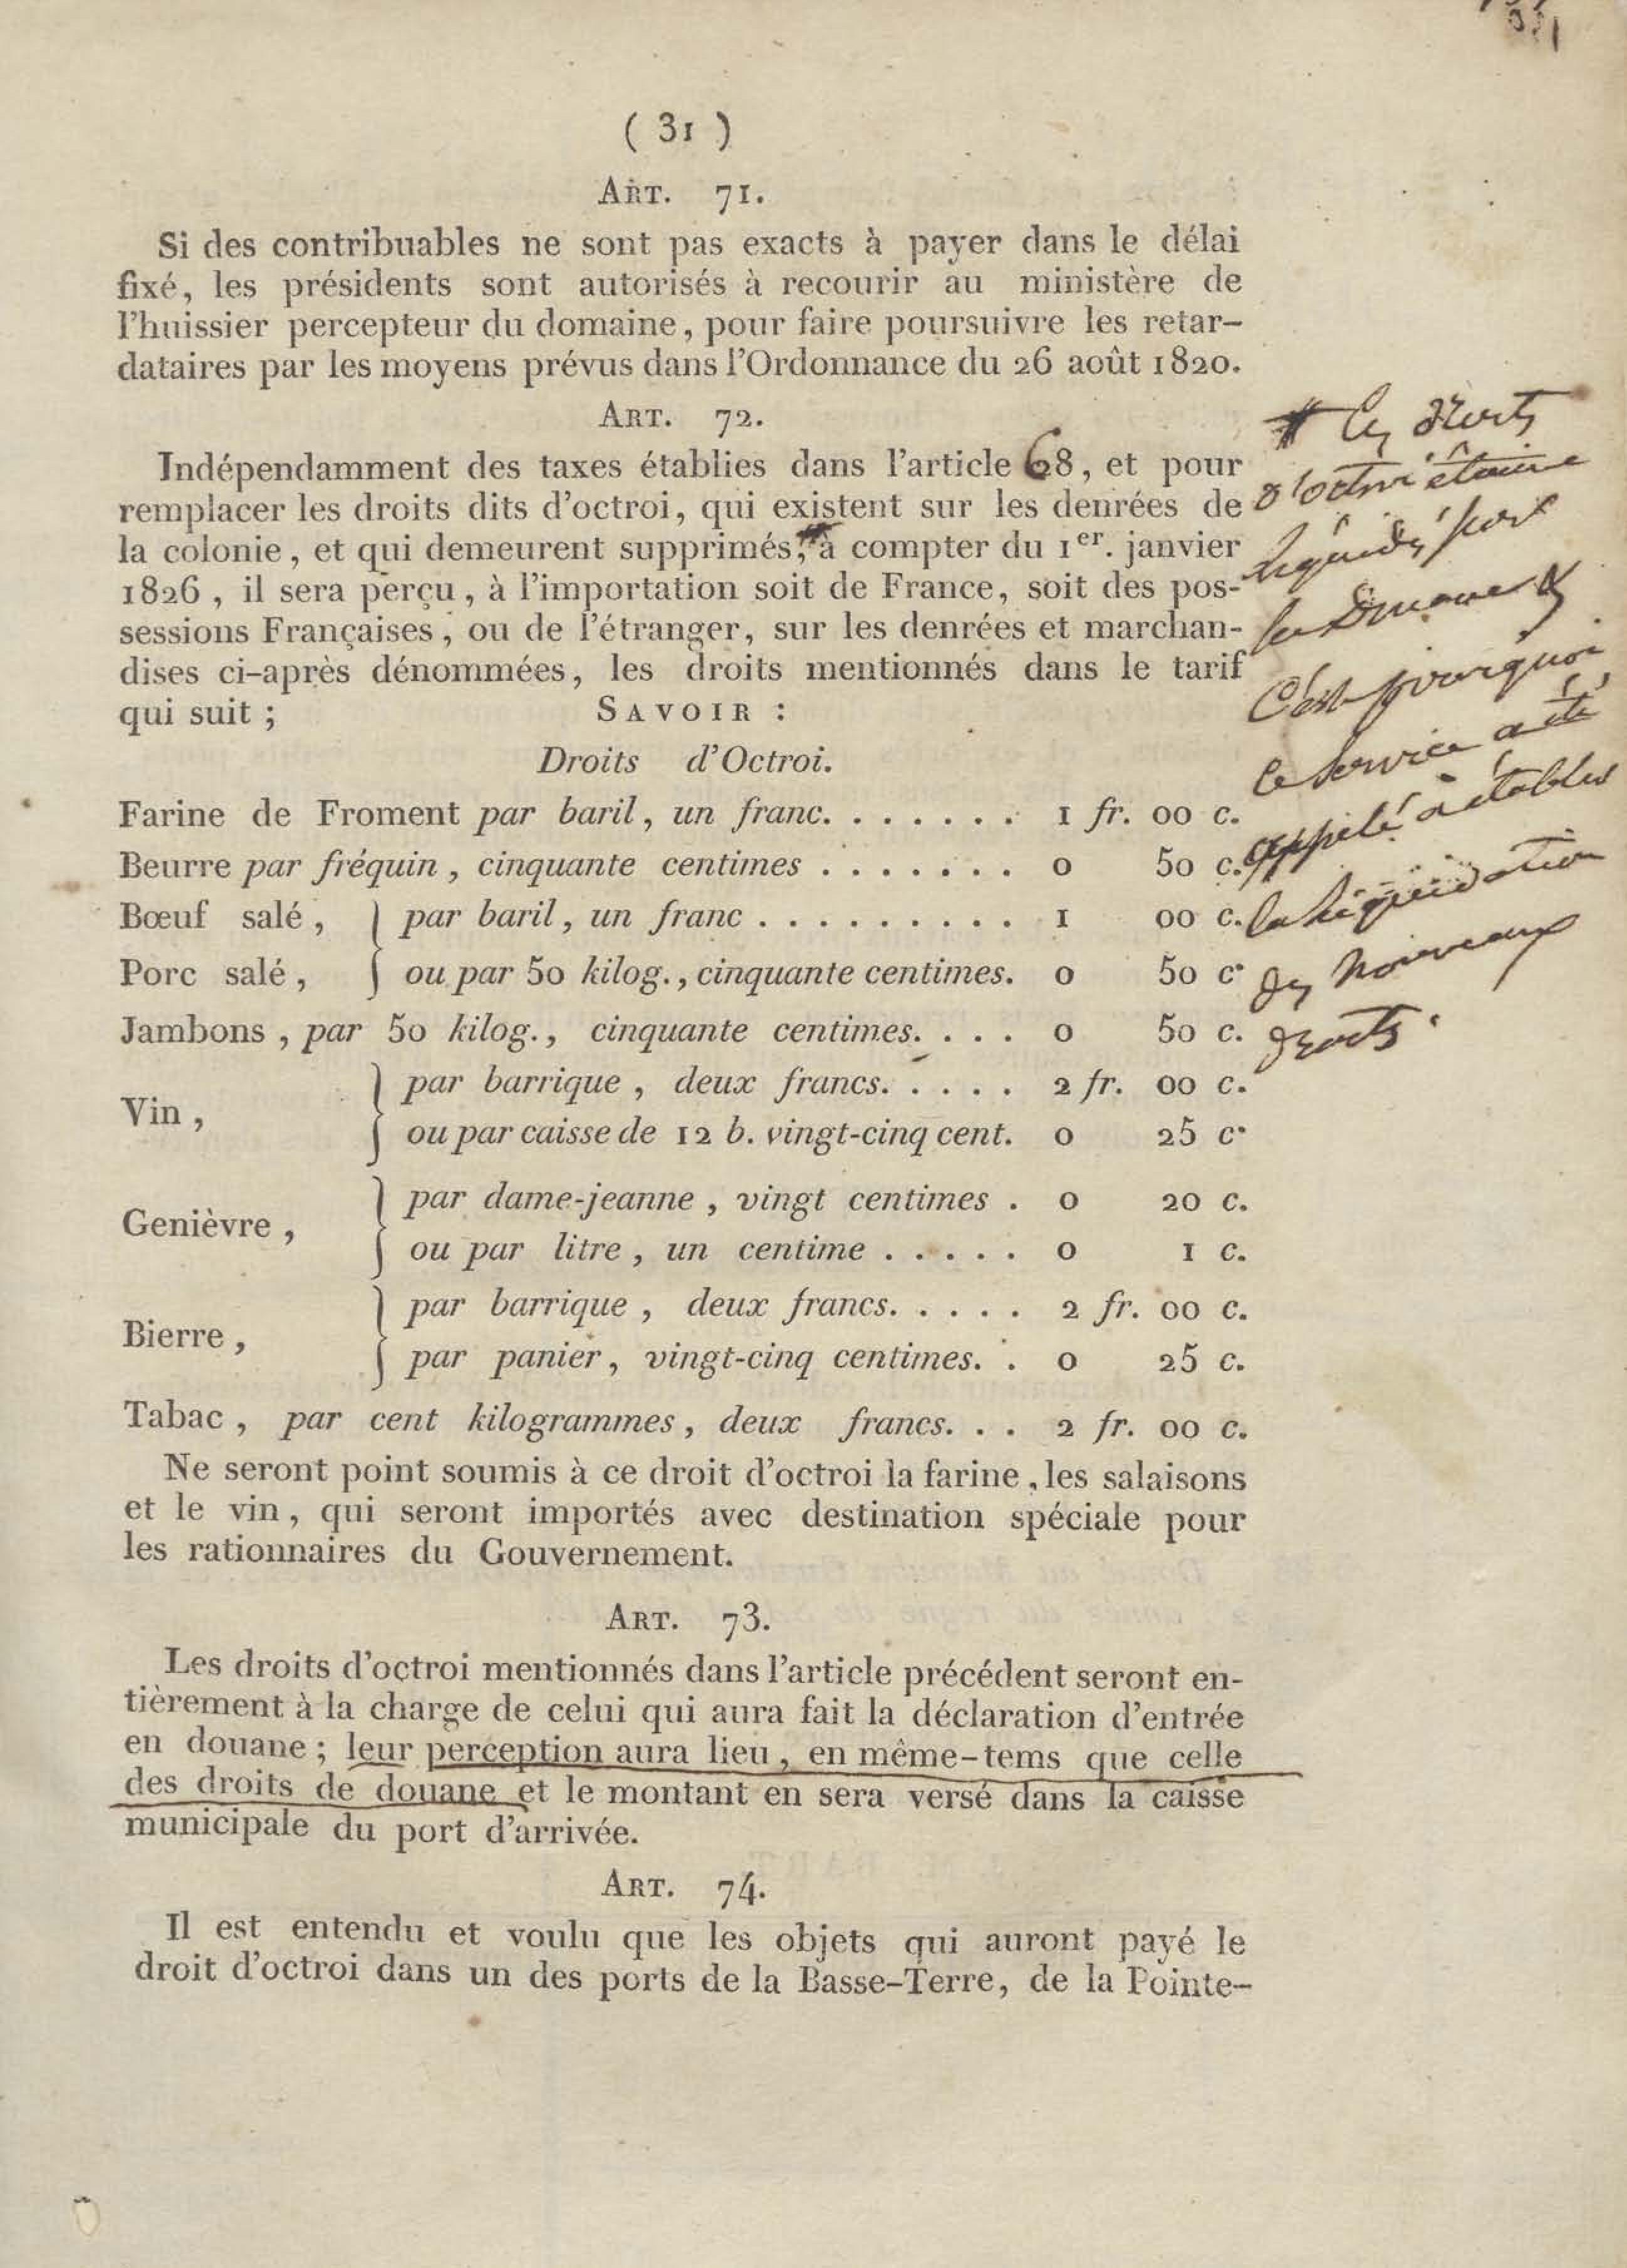 ( 31 )
ART. 71.
Si des contribuables ne sont pas exacts à payer dans le délai
fixé, les présidents sont autorisés à recourir au ministère de
l'huissier percepteur du domaine, pour faire poursuivre les retar-
dataires par les moyens prévus dans l'Ordonnance du 26 août 1820.
ART. 72.
Indépendamment des taxes établies dans l'article 68, et pour
remplacer les droits dits d'octroi, qui existent sur les denrées de
la colonie, et qui demeurent supprimés, à compter du 1er. janvier
1826, il sera perçu, à l'importation soit de France, soit des pos-
sessions Françaises, ou de l'étranger, sur les denrées et marchan-
dises ci-après dénommées, les droits mentionnés dans le tarif
qui suit ; SAVOIR :
Droits d'Octroi.
Farine de Froment par baril, un franc. . . . . . . 1 fr. 00 c.
Beurre par fréquin, cinquante centimes . . . . . . . 0 50 c.
Bœuf salé, } par baril, un franc . . . . . . . . . 1 00 c.
Porc salé, } ou par 50 kilog., cinquante centimes. 0 50 c.
Jambons, par 50 kilog., cinquante centimes. . . . 0 50 c.
Vin, } par barrique, deux francs. . . . . 2 fr. 00 c.
ou par caisse de 12 b. vingt-cinq cent. 0 25 c.
Genièvre, } par dame-jeanne, vingt centimes . 0 20 c.
ou par litre, un centime . . . . . 0 1 c.
Bierre, } par barrique, deux francs. . . . . 2 fr. 00 c.
par panier, vingt-cinq centimes. . 0 25 c.
Tabac, par cent kilogrammes, deux francs. . . 2 fr. 00 c.
Ne seront point soumis à ce droit d'octroi la farine, les salaisons
et le vin, qui seront importés avec destination spéciale pour
les rationnaires du Gouvernement.
ART. 73.
Les droits d'octroi mentionnés dans l'article précédent seront en-
tièrement à la charge de celui qui aura fait la déclaration d'entrée
en douane ; leur perception aura lieu, en même-tems que celle
des droits de douane et le montant en sera versé dans la caisse
municipale du port d'arrivée.
ART. 74.
Il est entendu et voulu que les objets qui auront payé le
droit d'octroi dans un des ports de la Basse-Terre, de la Pointe-
# les droits
d'octroi étaient
liquidés par
la Douane &
C'est pourquoi
le Service a été
appelé à établir
la liquidation
des nouveaux
droits.